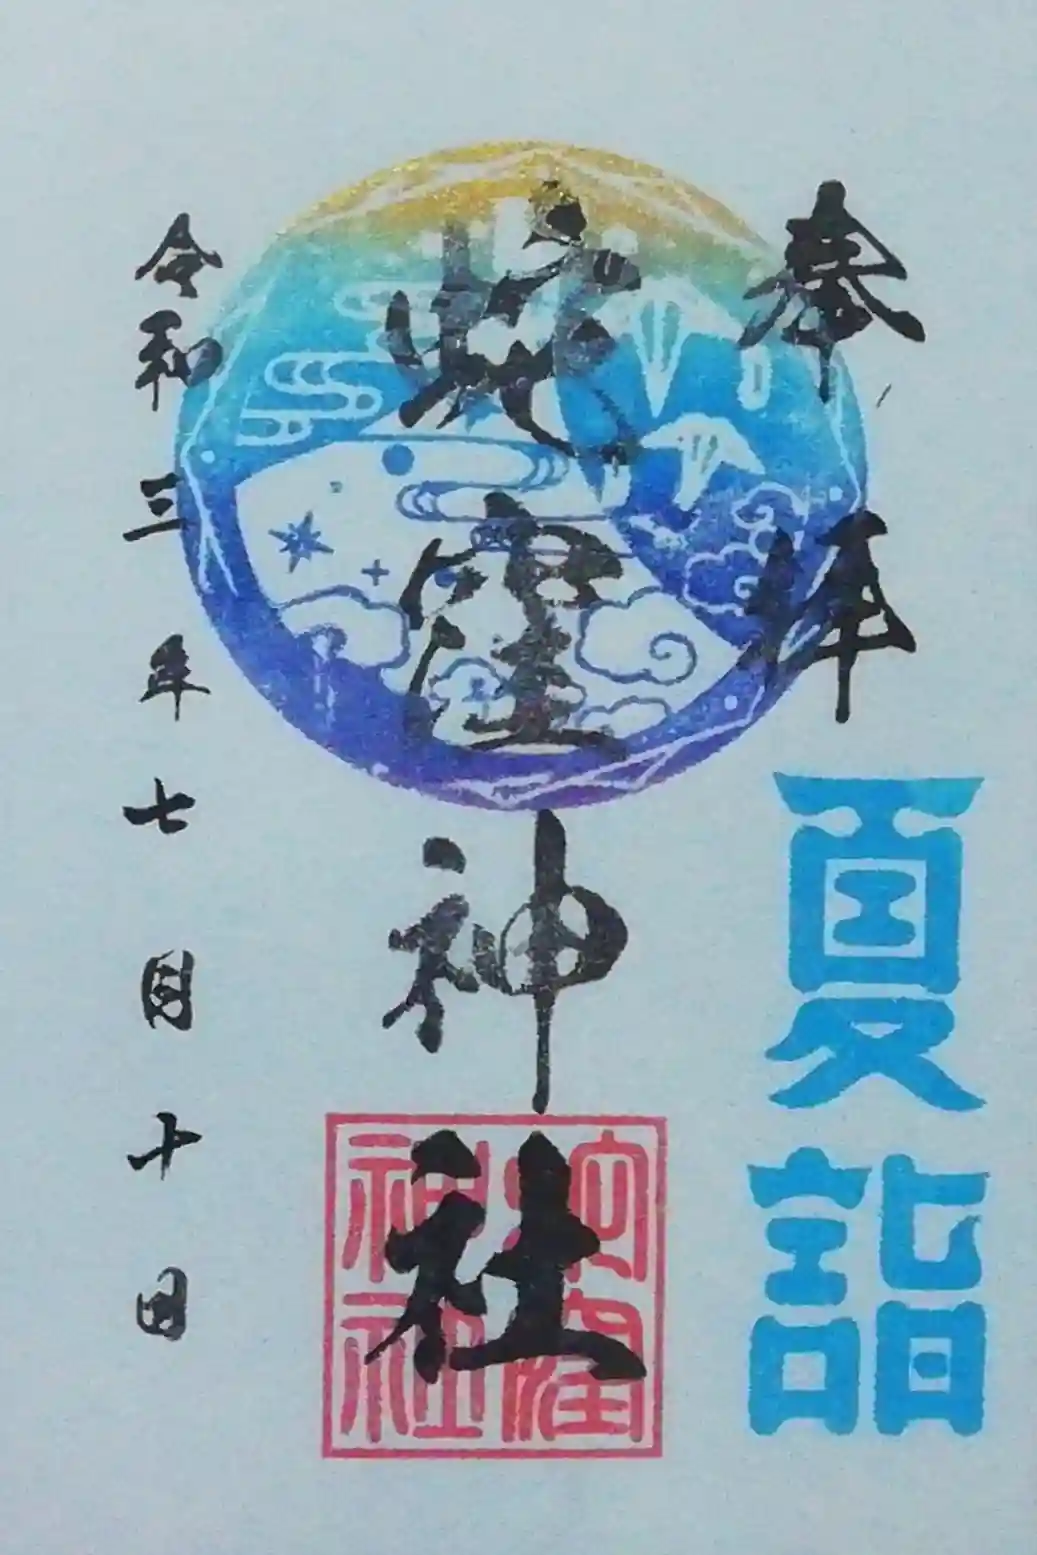 奉拝
夏詣
蛇窪神社
蛇窪
神社
令和三年七月十日